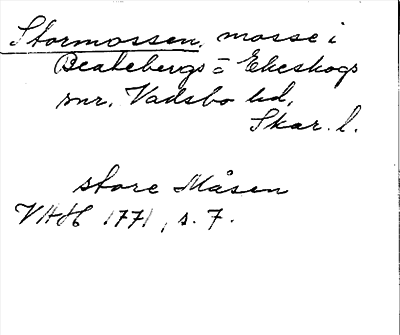 Stormossen, mosse i
Beatebergs = Ekeskogs
snr, Vadsbo hd,
Skar. l.
store Måsen
VHH 1771, s. 7.